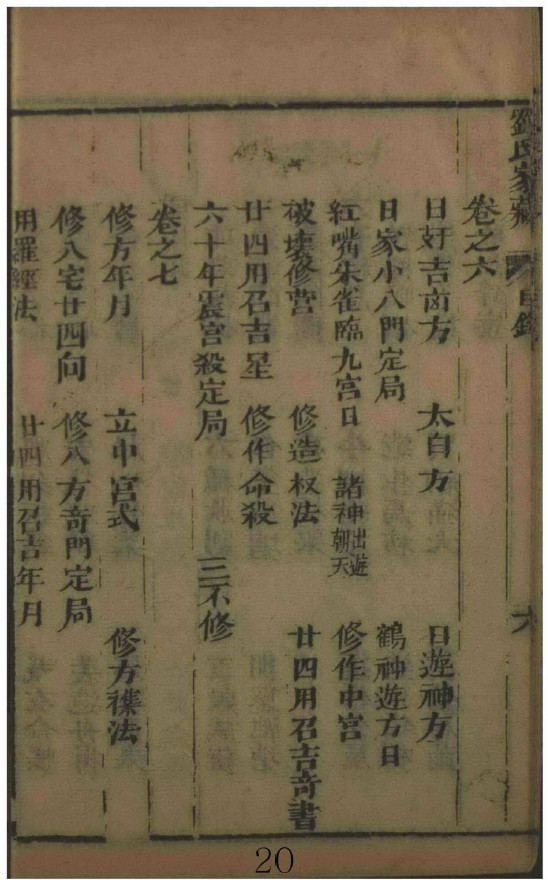 劉氏家藏 目錄 六
卷之六
日奸吉凶方 太白方 日遊神方
日家小八門定局 鶴神遊方日
紅嘴朱雀臨九宮日 諸神出遊朝天 修作中宮
破壞修營 修造权法 廿四用召吉奇書
廿四用召吉星 修作命殺
六十年震宮殺定局 三不修
卷之七
修方年月 立中宮式 修方禳法
修八宅廿四向 修八方奇門定局
用羅經法 廿四用召吉年月
20